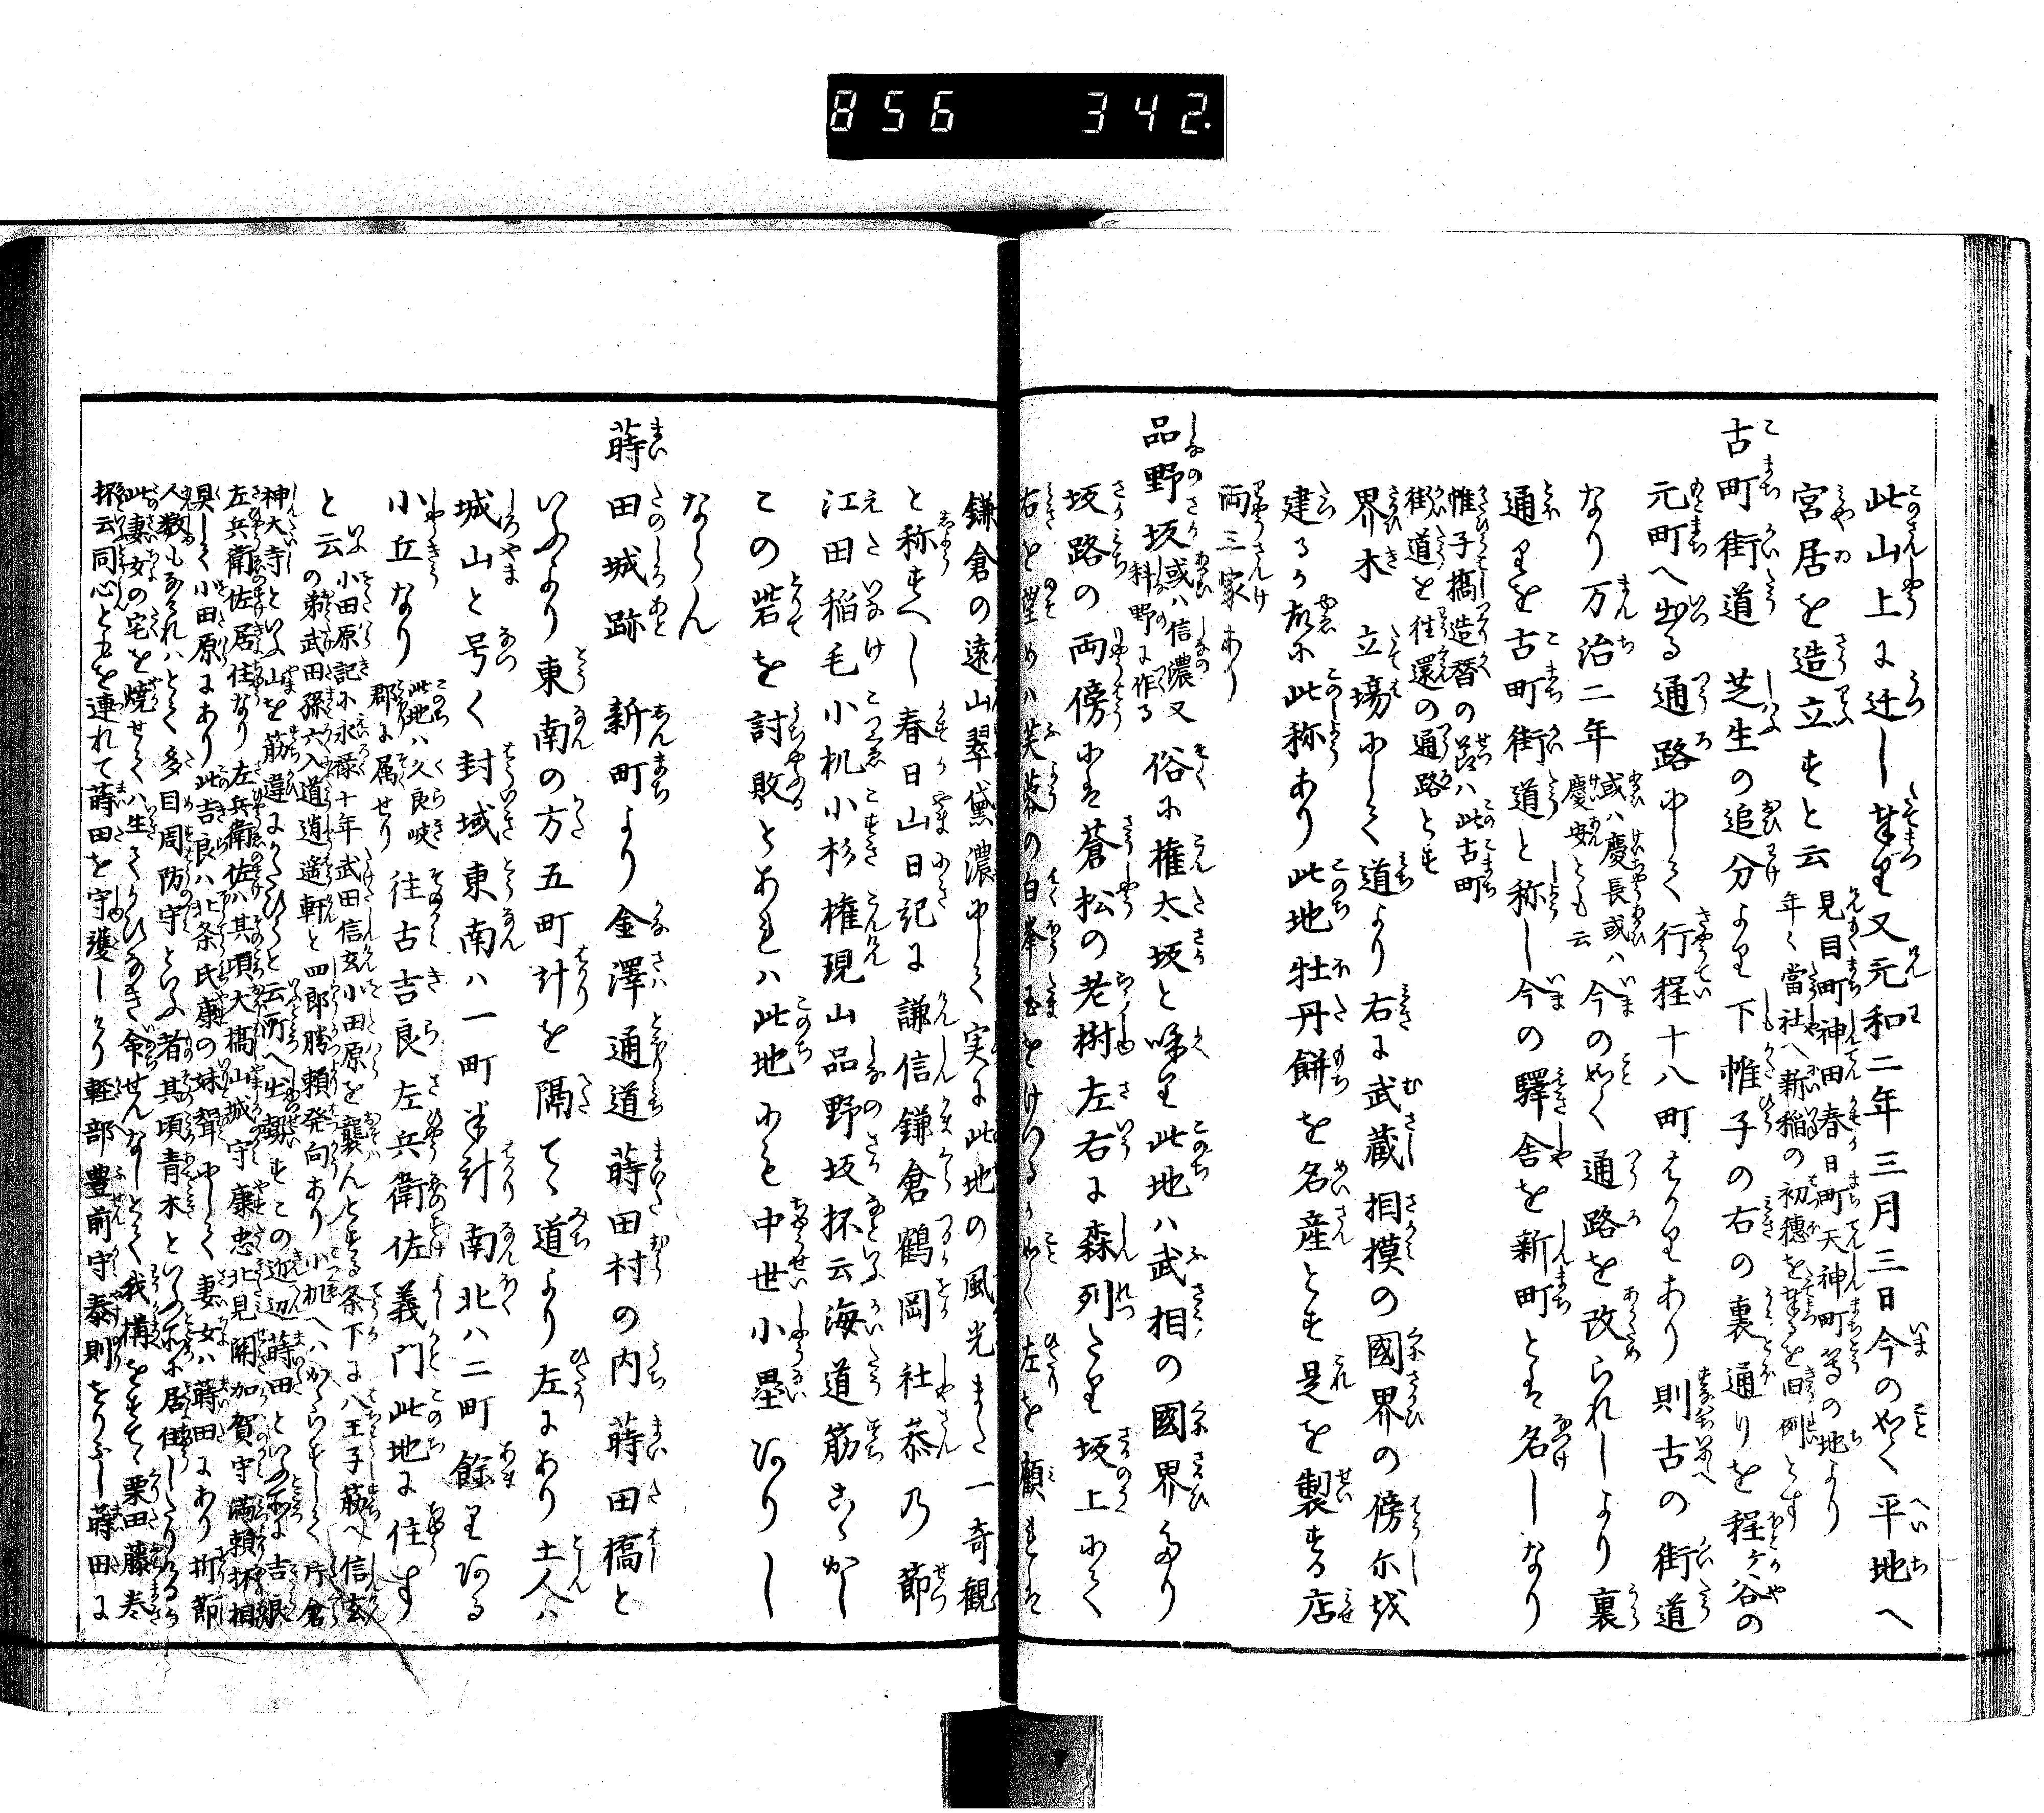 856 342.
此山上に迁し奉り又元和二年三月三日今のやく平地へ
宮居を造立すと云
見目町神田春日町天神町等の地より
年々當社へ新稲の初穂を奉るを旧例とす
古町街道 芝生の追分より下帷子の右の裏通りを程ヶ谷の
元町へ出る通路にして行程十八町はかりあり則古の街道
なり万治二年
或ハ慶長或ハ
慶安とも云
今の如く通路を改られしより裏
通りを古町街道と称し今の驛舎を新町とは名しなり
帷子橋造替の節ハ此古町
街道を往還の通路とす
界木 立場にして道より右に武蔵相摸の國界の傍示杭
建るか故に此称あり此地牡丹餅を名産とす是を製する店
両三家あり
品野坂
或ハ信濃又
科野に作る
俗に権太坂と唱へり此地ハ武相の國界なり
坂路の両傍には蒼松の老樹左右に森列たり坂上にて
右を望めハ芙蓉の白峯玉をけつるか如く左を顧れは
鎌倉の遠山翠黛濃にして実に此地の風光また一奇観
と称すへし春日山日記に謙信鎌倉鶴岡社恭乃節
江田稲毛小机小杉権現山品野坂抔云海道筋あらかし
この砦を討敗とあれハ此地にも中世小塁ありし
ならん
蒔田城跡 新町より金澤通道蒔田村の内蒔田橋と
いふより東南の方五町計を隔てゝ道より左にあり土人ハ
城山と号く封域東南ハ一町半計南北ハ二町餘りある
小丘なり
此地ハ久良岐
郡に属せり
往古吉良左兵衛佐義門此地に住す
と云
小田原記に永禄十年武田信玄小田原を襲んとする条下に八王子筋へ信玄
の弟武田孫六入道逍遥軒と四郎勝頼発向あり小机へハかゝらすして片倉
神大寺といふ山を筋違にかたひらと云所へ出勢すこの近辺蒔田といふ所に吉良
左兵衛佐居住なり左兵衛佐ハ其頃大橋山城守康忠北見関加賀守満頼抔相
具して小田原にあり此吉良ハ北条氏康の妹聟にして妻女ハ蒔田にあり折節
人数もあらされハとて多目周防守といふ者其頃青木といふ所に居住したりけるか
此妻女の宅を焼せてハ生きかひなき命せんなしとて我構をすてゝ栗田藤巻
抔云同心ともを連れて蒔田を守護しけり軽部豊前守泰則をりふし蒔田に